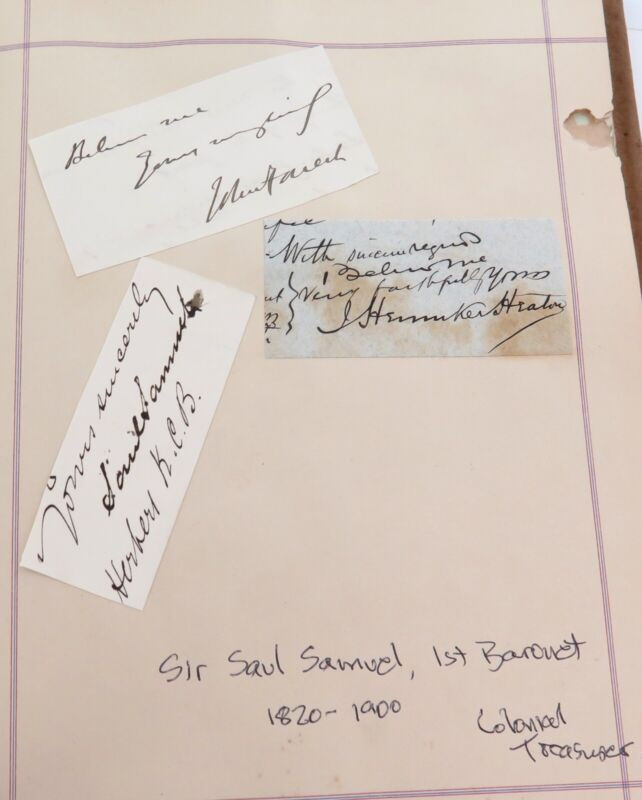 Believe me
Yours
With sincere regard
Believe me
Very faithfully yours
J Henniker Heaton
Yours sincerely
Saul Samuel
Herbert K.C.B.
Sir Saul Samuel, 1st Baronet
1820-1900
Colonial
Treasurer